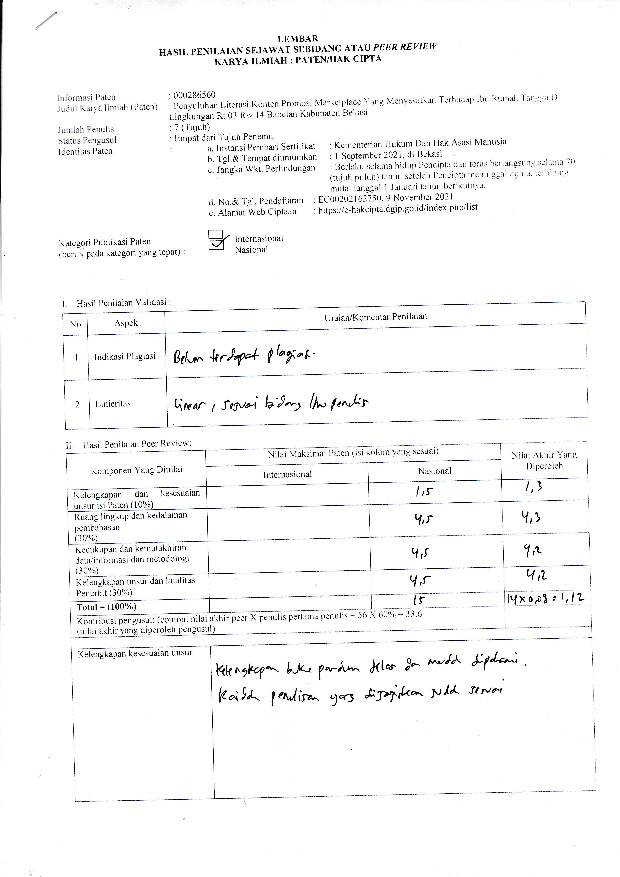 LEMBAR
HASIL PENILAIAN SEJAWAT SEBIDANG ATAU PEER REVIEW
KARYA ILMIAH : PATEN/HAK CIPTA
Informasi Paten : 000286560
Judul Karya Ilmiah (Paten) : Penyuluhan Literasi Konten Promosi Marketplace Yang Menyesatkan Terhadap Ibu Rumah Tangga Di
Lingkungan Rt 03 Rw 14 Kabupaten Bekasi
Jumlah Penulis : 7 (Tujuh)
Status Pengusul : Empat dari Tujuh Penemu
Identitas Paten : a. Instansi Pemberi Sertifikat : Kementerian Hukum Dan Hak Asasi Manusia
b. Tgl & Tempat diumumkan : 1 September 2021, di Bekasi
c. Jangka Wkt. Perlindungan : Berlaku selama hidup Pencipta dan terus berlangsung selama 70
(tujuh puluh) tahun setelah Pencipta meninggal dunia, terhitung
mulai tanggal 1 Januari tahun berikutnya.
d. No.& Tgl. Pendaftaran : EC00202163750, 9 November 2021
e. Alamat Web Ciptaan : https://e-hakcipta.dgip.go.id/index.php/list
Kategori Publikasi Paten Internasional
(beri ✓ pada kategori yang tepat) : ✓ Nasional
I. Hasil Penilaian Validasi :
No Aspek Uraian/Komentar Penilaian
1 Indikasi Plagiasi Belum terdapat plagiat.
2 Linieritas Linear, sesuai bidang ilmu penulis
II. Hasil Penilaian Peer Review:
Komponen Yang Dinilai Nilai Maksimal Paten (isi kolom yang sesuai) Nilai Akhir Yang
Diperoleh
Internasional Nasional
Kelengkapan dan kesesuaian
unsur isi Paten (10%) 1,5 1,3
Ruang lingkup dan kedalaman
pembahasan
(30%) 4,5 4,3
Kecukupan dan kemutakhiran
data/informasi dan metodologi
(30%) 4,5 4,2
Kelengkapan unsur dan kualitas
Penerbit (30%) 4,5 4,2
Total = (100%) 15 14 x 0,08 = 1,12
Kontribusi pengusul: (contoh: nilai akhir peer X penulis pertama penulis = 56 X 60% = 33.6
(nilai akhir yang diperoleh pengusul)
Kelengkapan kesesuaian unsur Kelengkapan buku panduan jelas dan mudah dipahami.
Kaidah penulisan yang disajikan sudah sesuai